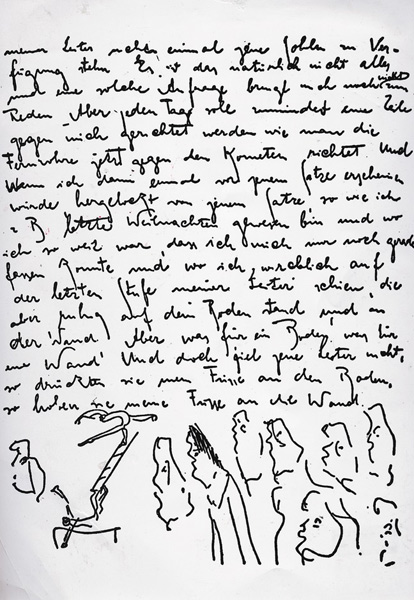 meiner Leiter nicht einmal jene Sohlen zur Ver-
fügung stehn Es ist das natürlich nicht alles
und eine solche Anfrage bringt mich noch nicht zum
Reden Aber jeden Tag soll zumindest eine Zeile
gegen mich gerichtet werden wie man die
Fernrohre jetzt gegen den Kometen richtet Und
wenn ich dann einmal vor jenem Satze erscheinen
würde hergelockt von jenem Satze so wie ich
z B letzte Weihnachten gewesen bin und wo
ich so weit war dass ich mich nur noch gerade
fassen konnte und wo ich wirklich auf
der letzten Stufe meiner Leiter schien, die
aber ruhig auf dem Boden stand und an
der Wand Aber was für ein Boden, was für
eine Wand! Und doch fiel jene Leiter nicht,
so drückten sie meine Füsse an den Boden,
so hoben sie meine Füsse an die Wand.